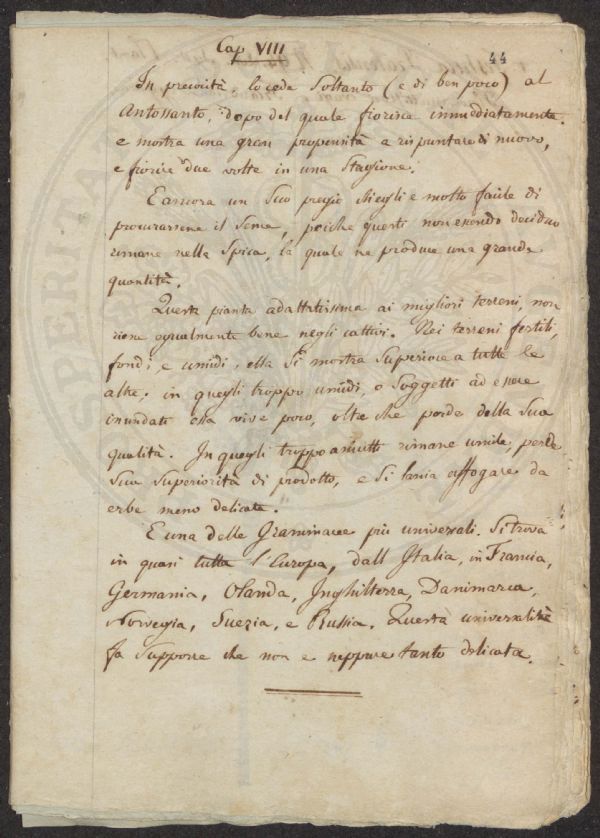 Cap VIII
44
In precocità lo cede Soltanto (e di ben poco) al
Antossanto, dopo del quale fiorisce immediatamente.
e mostra una gran propensità a rispuntare di nuovo,
e fiorire due volte in una Stagione.
E ancora un Suo pregio ch'egli e molto facile di
procurarsene il Seme, poiche questi non essendo deciduo
rimane nella Spica, la quale ne produce una grande
quantità.
Questa pianta adattatissima ai migliori terreni, non
viene egualmente bene negli cattivi. Nei terreni fertili,
fondi, e umidi, ella Si mostra Superiore a tutte le
altre. in quegli troppo umidi, o Soggetti ad essere
inundati essa vive poco, oltre che perde della Sua
qualità. In quegli troppo asciutti rimane umile, perde
Sua Superiorità di prodotto, e Si lascia affogare da
erbe meno delicate.
E una delle Graminacee più universali. Si trova
in quasi tutta l'Europa, dall Italia, in Francia,
Germania, Olanda, Inghilterra, Danimarca,
Norvegia, Suezia, e Russia. Questa universalità
fa Supporre che non e neppure tanto delicata.